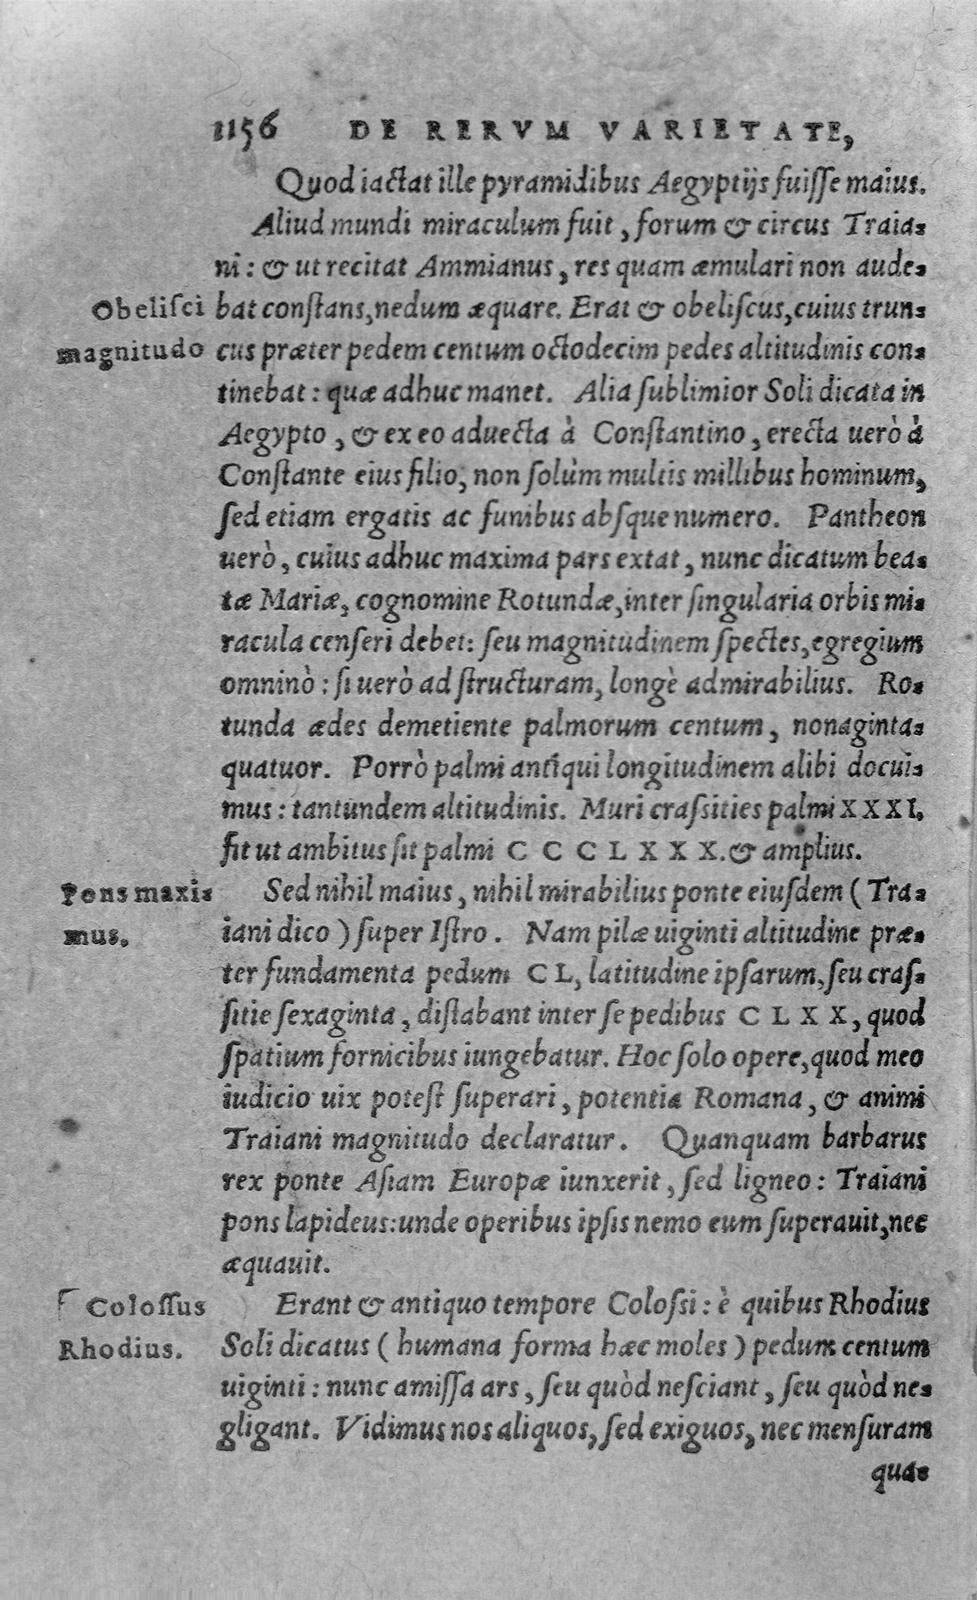 1156 DE RERVM VARIETATE,
Quod iactat ille pyramidibus Aegyptijs fuiſſe maius.
Aliud mundi miraculum fuit, forum & circus Traia-
ni: & ut recitat Ammianus, res quam æmulari non aude-
Obeliſci
bat conſtans, nedum æquare. Erat & obeliſcus, cuius trun-
magnitudo
cus præter pedem centum octodecim pedes altitudinis con-
tinebat: quæ adhuc manet. Alia ſublimior Soli dicata in
Aegypto, & ex eo aduecta à Conſtantino, erecta uerò à
Conſtante eius filio, non ſolùm multis millibus hominum,
ſed etiam ergatis ac funibus abſque numero. Pantheon
uerò, cuius adhuc maxima pars extat, nunc dicatum bea-
tæ Mariæ, cognomine Rotundæ, inter ſingularia orbis mi-
racula cenſeri debet: ſeu magnitudinem ſpectes, egregium
omninò: ſi uerò ad ſtructuram, longè admirabilius. Ro-
tunda ædes demetiente palmorum centum, nonaginta-
quatuor. Porrò palmi antiqui longitudinem alibi docui-
mus: tantundem altitudinis. Muri craſsities palmi XXXI,
fit ut ambitus ſit palmi CCCLXXX. & amplius.
Pons maxi-
Sed nihil maius, nihil mirabilius ponte eiuſdem (Tra-
mus.
iani dico) ſuper Iſtro. Nam pilæ uiginti altitudine præ-
ter fundamenta pedum CL, latitudine ipſarum, ſeu craſ-
ſitie ſexaginta, diſtabant inter ſe pedibus CLXX, quod
ſpatium fornicibus iungebatur. Hoc ſolo opere, quod meo
iudicio uix poteſt ſuperari, potentia Romana, & animi
Traiani magnitudo declaratur. Quanquam barbarus
rex ponte Aſiam Europæ iunxerit, ſed ligneo: Traiani
pons lapideus: unde operibus ipſis nemo eum ſuperauit, nec
æquauit.
Coloſſus
Erant & antiquo tempore Coloſsi: è quibus Rhodius
Rhodius.
Soli dicatus (humana forma hæc moles) pedum centum
uiginti: nunc amiſſa ars, ſeu quòd neſciant, ſeu quòd ne-
gligant. Vidimus nos aliquos, ſed exiguos, nec menſuram
qua-